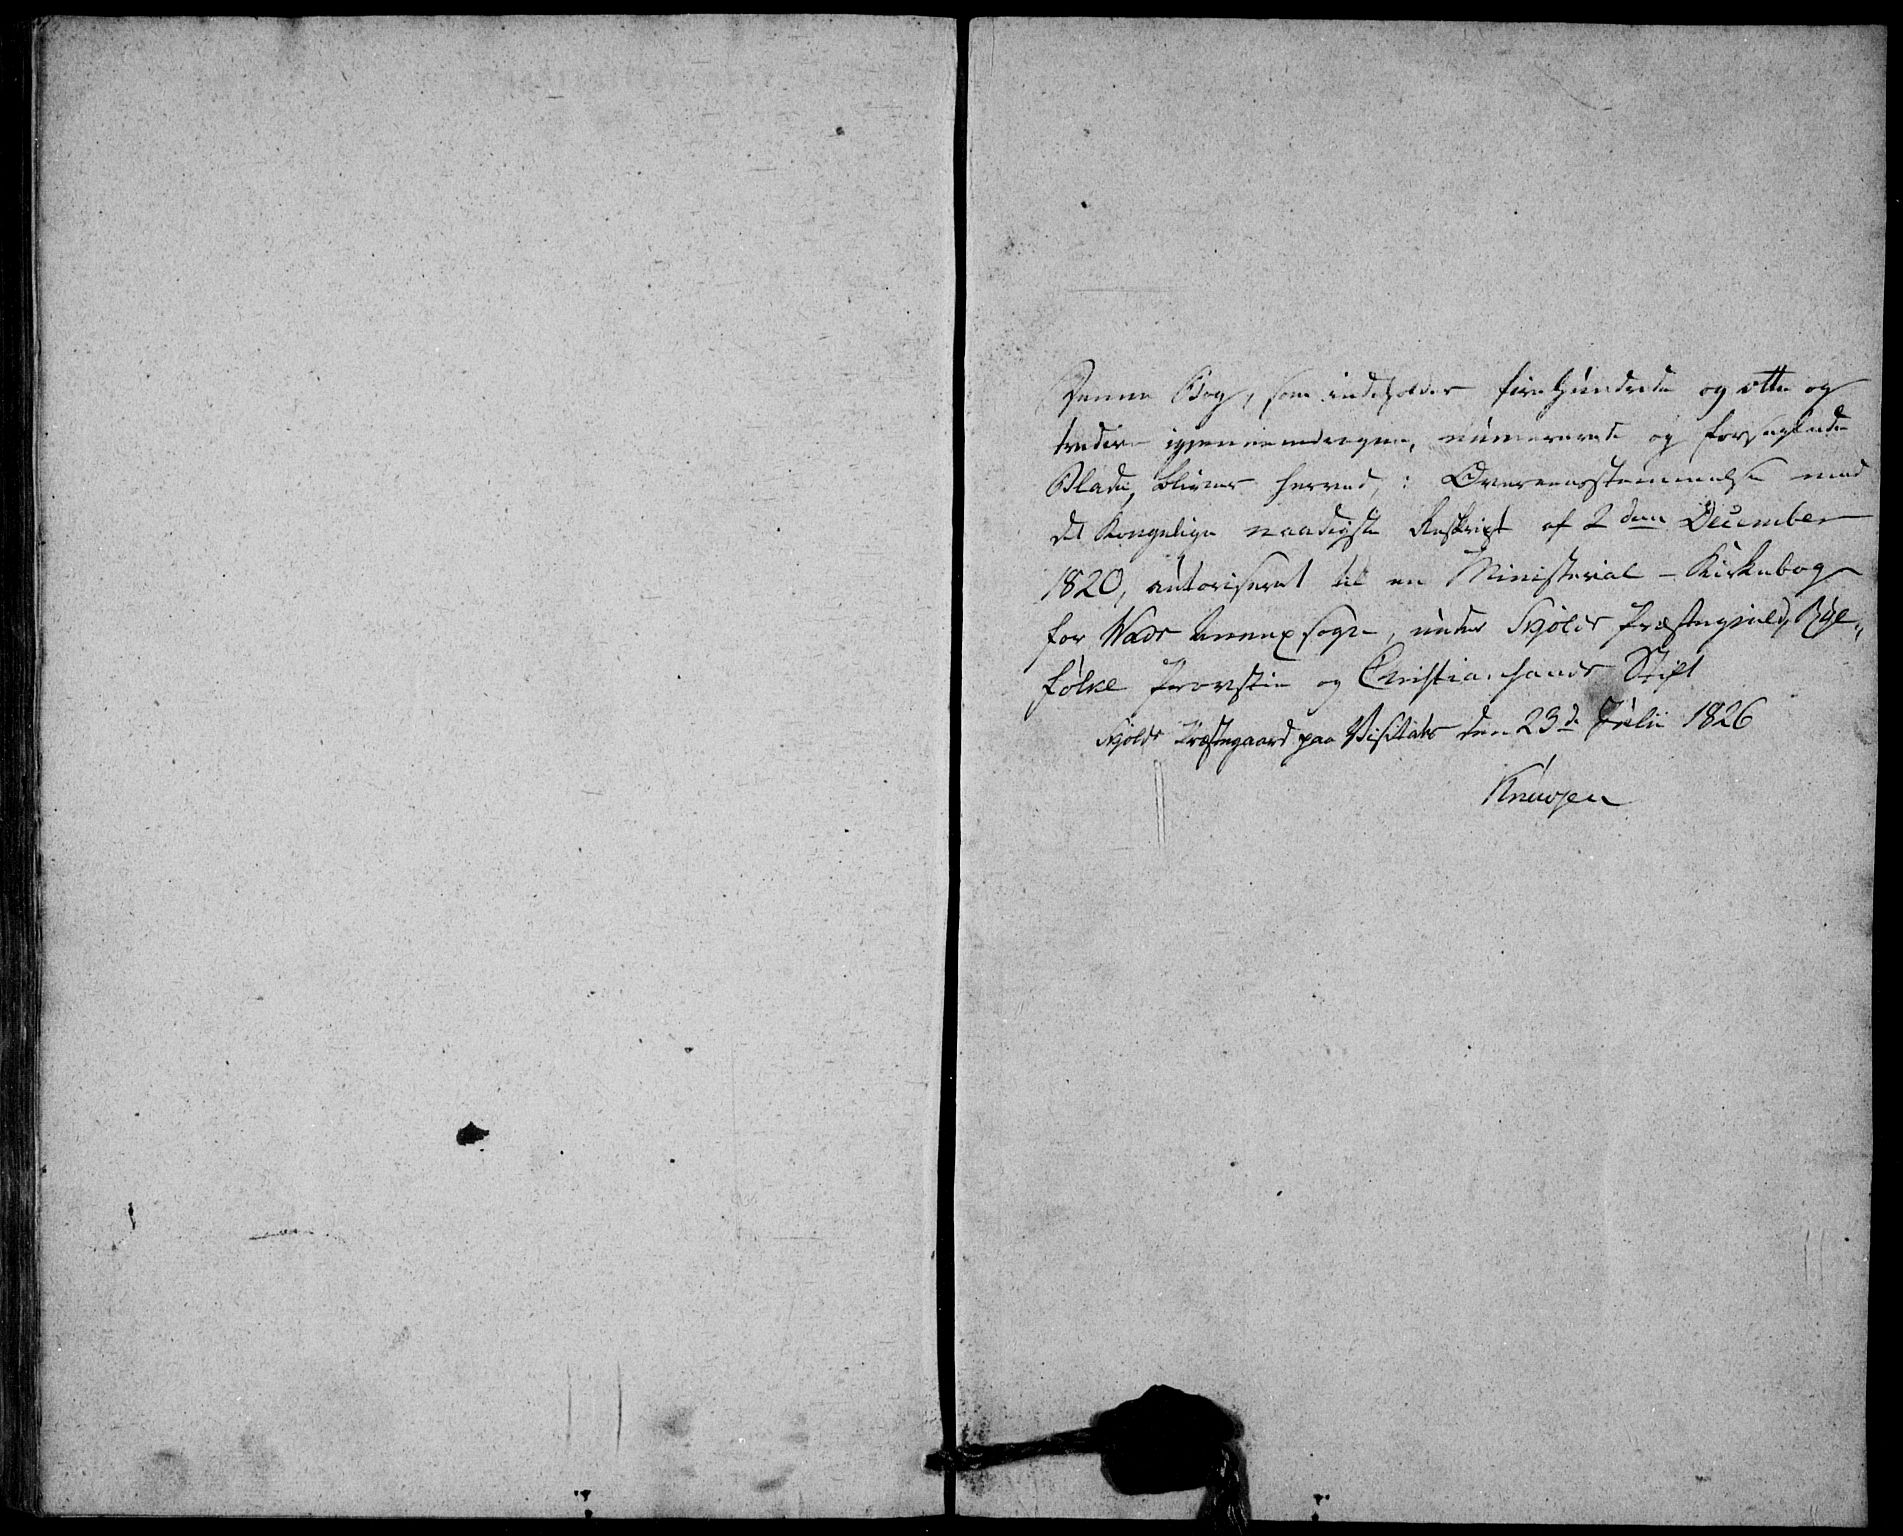 Denne Bog, som indeholder fire Hundrede og otte og
tredive igjennemdragne, numererede og forseglede
Blade, bliver herved, i Overeensstemmelse med
det Kongelige naadigste Reskript af 2 den December
1820, autoriseret til en Ministerial-Kirkebog
for Wads Annexsogn, under Skjolds Præstegjeld, Rye„
fylke Provstie og Christiansands Stift
Skjolds Præstegaard paa Visitats den 23de Julii 1826